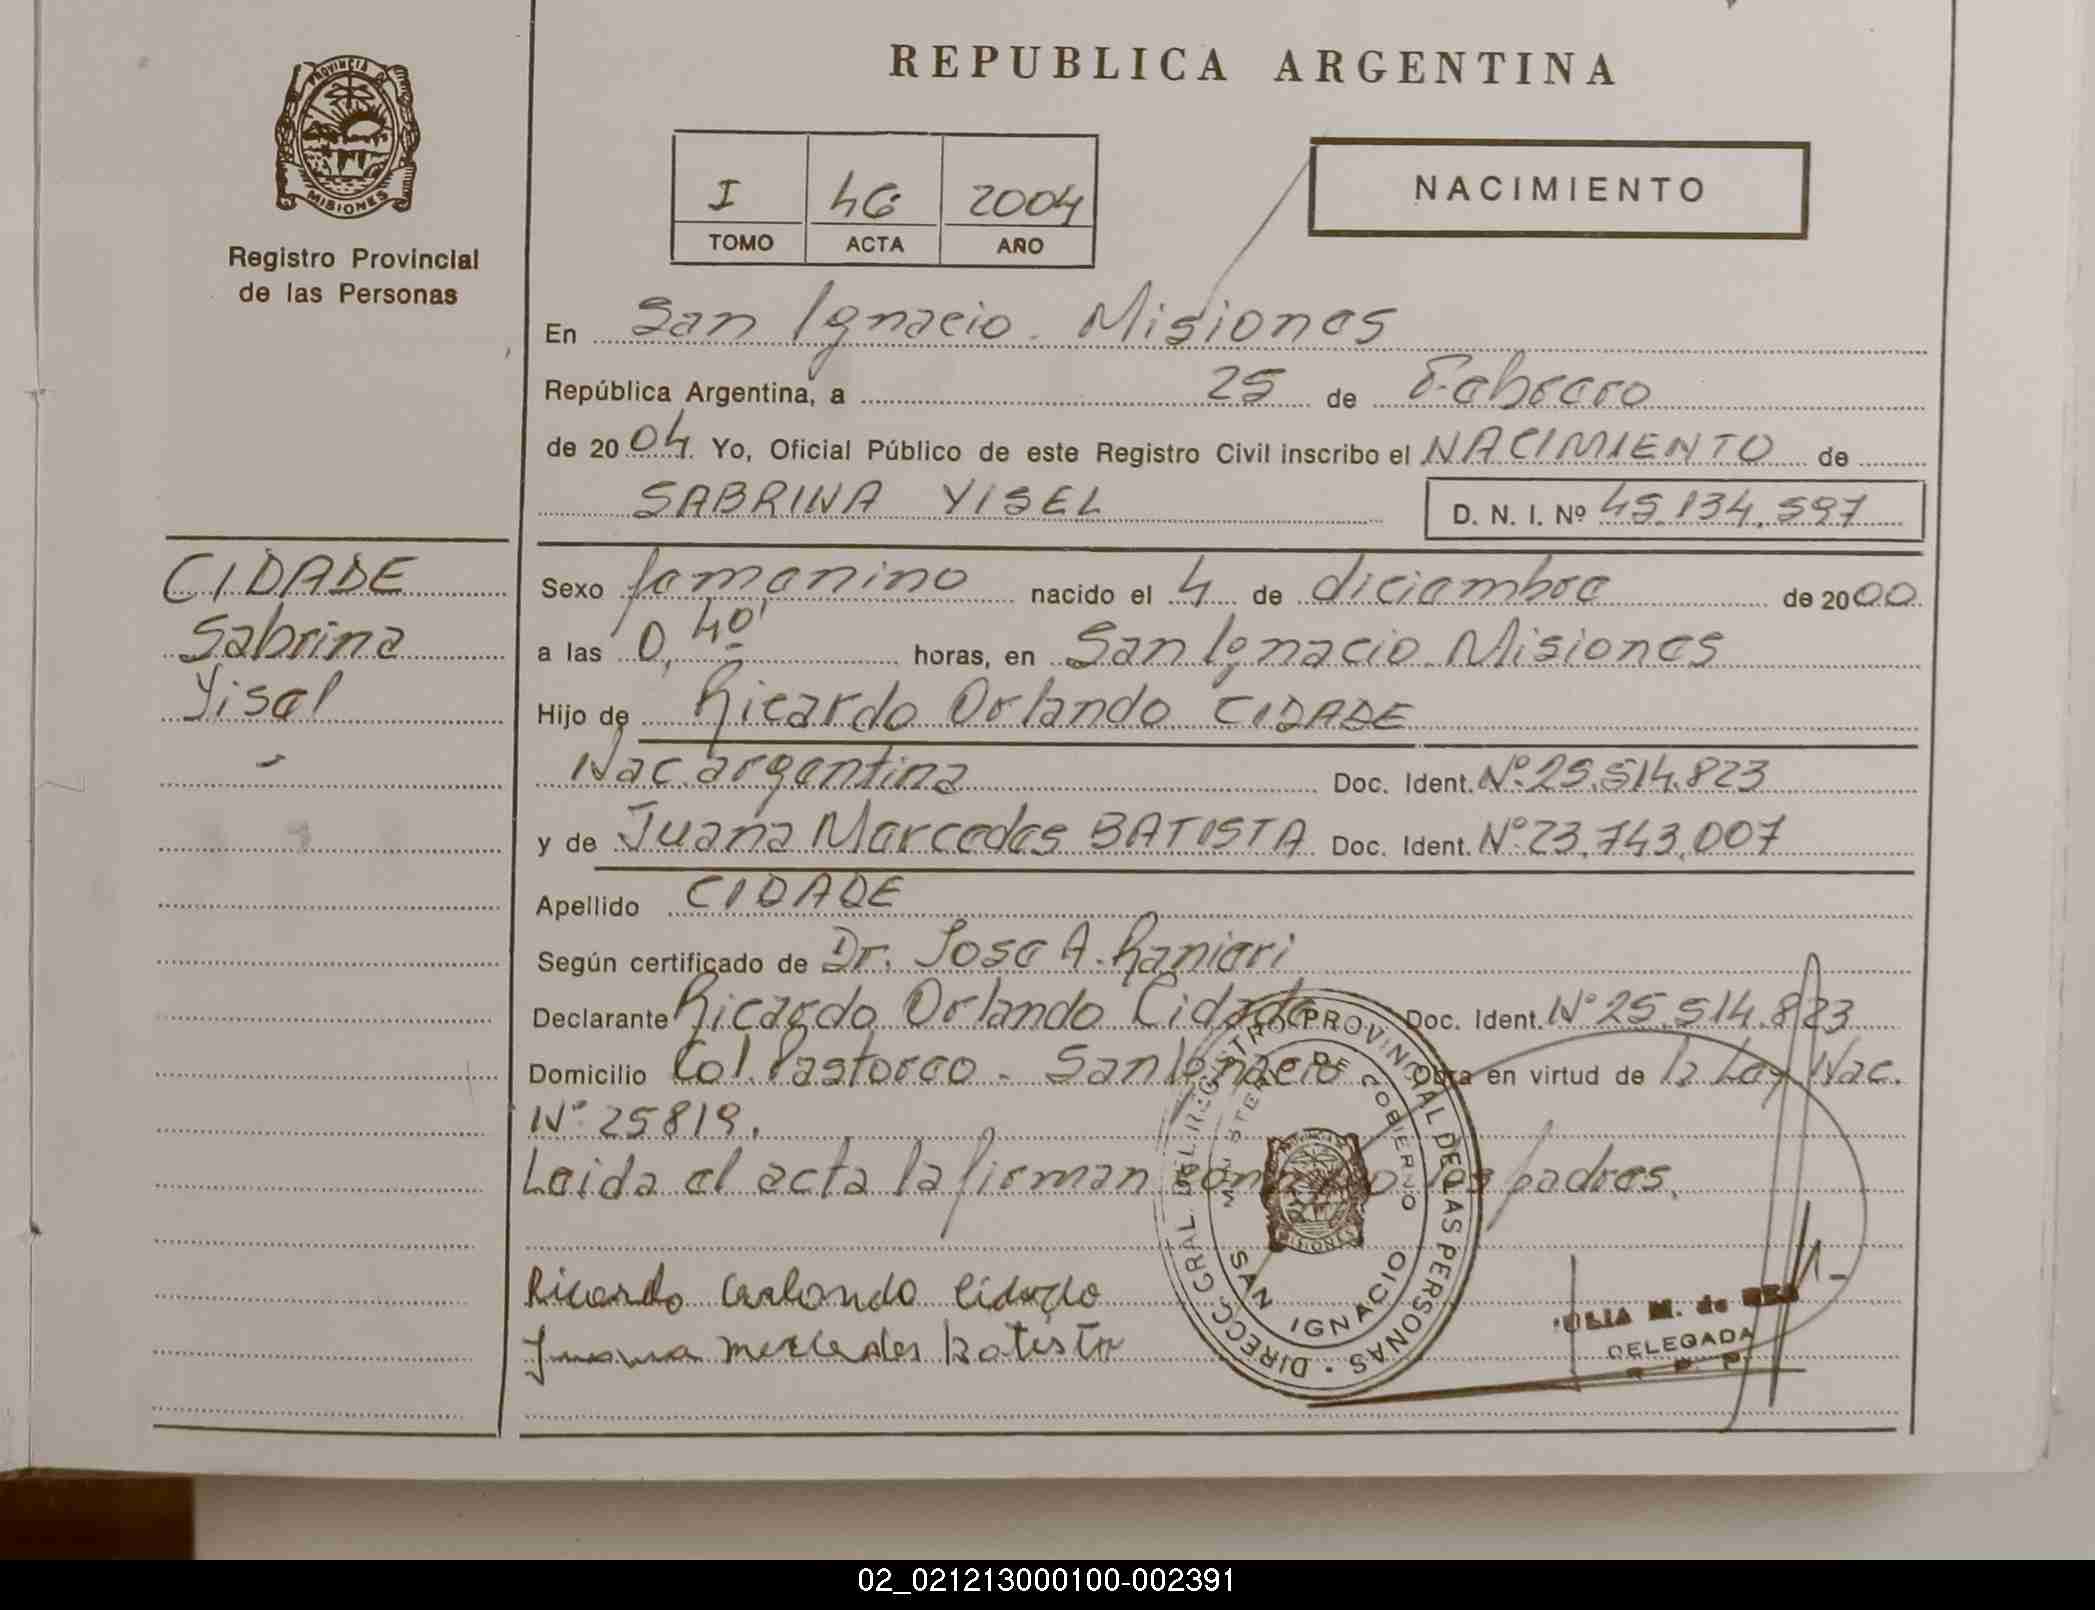 REPUBLICA ARGENTINA
PROVINCIA DE MISIONES
Registro Provincial
de las Personas
I 46 2004
TOMO ACTA AÑO
NACIMIENTO
En San Ignacio - Misiones
República Argentina, a 25 de Febrero
de 2004. Yo, Oficial Público de este Registro Civil inscribo el NACIMIENTO de
SABRINA YISEL D. N. I. Nº 45.134.597
CIDADE
Sabrina
Yisel
-
Sexo femenino nacido el 4 de diciembre de 2000
a las 0,40' horas, en San Ignacio. Misiones
Hijo de Ricardo Orlando CIDADE
Nac. argentina Doc. Ident. Nº 25.514.823
y de Juana Mercedes BATISTA Doc. Ident. Nº 23.743.007
Apellido CIDADE
Según certificado de Dr. Jose A. Ranieri
Declarante Ricardo Orlando Cidade Doc. Ident. Nº 25.514.823
Domicilio Col. Pastoreo - San Ignacio Obra en virtud de la Ley Nac.
Nº 25819.
Leida el acta la firman conmigo los padres.
Ricardo Orlando Cidade
Juana Mercedes Batista
DIRECC. GRAL. DEL REGISTRO PROVINCIAL DE LAS PERSONAS
MINISTERIO DE GOBIERNO
MISIONES
SAN IGNACIO
M. de
DELEGADA
02_021213000100-002391